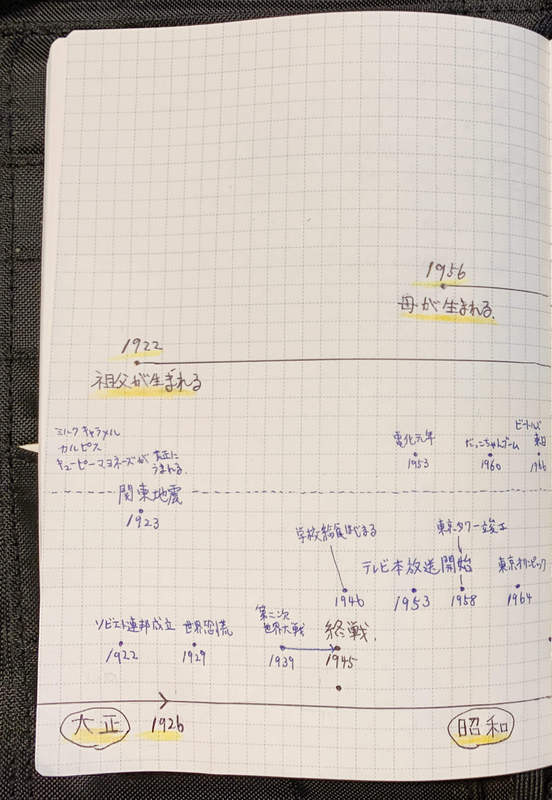 1956
母が生まれる.
1922
祖父が生まれる
ミルクキャラメル
カルピス
キューピーマヨネーズが 大正に
うまれる.
電化元年
1953
だっこちゃんブーム
1960
ビートルズ
来日
1966
関東地震
1923
学校給食はじまる
1946
テレビ本放送開始
1953
東京タワー竣工
1958
東京オリンピック
1964
ソビエト連邦成立
1922
世界恐慌
1929
第二次
世界大戦
1939
終戦.
1945
大正
1926
昭和